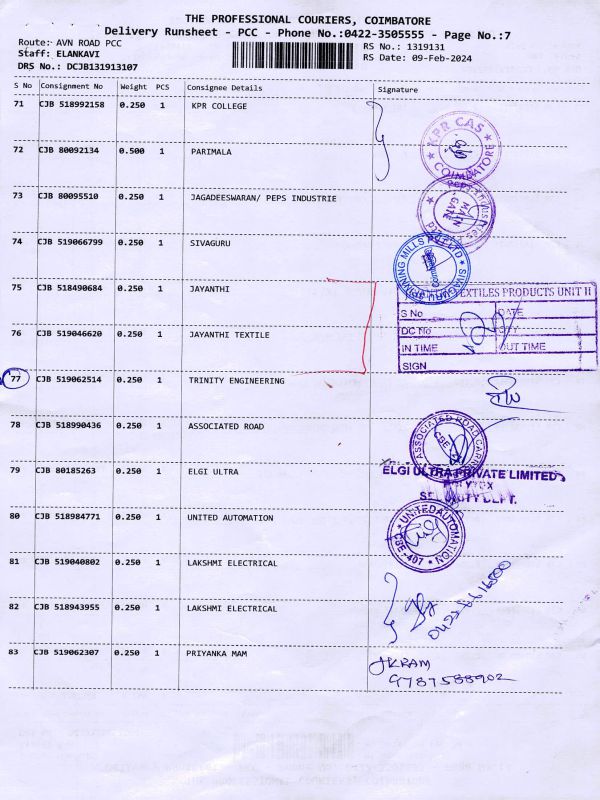 THE PROFESSIONAL COURIERS, COIMBATORE
Delivery Runsheet - PCC - Phone No.:0422-3505555 - Page No.:7
Route: AVN ROAD PCC
RS No.: 1319131
Staff: ELANKAVI
RS Date: 09-Feb-2024
DRS No.: DCJB131913107
S No Consignment No Weight PCS Consignee Details Signature
71 CJB 518992158 0.250 1 KPR COLLEGE
KPR CAS COIMBATORE
72 CJB 80092134 0.500 1 PARIMALA
73 CJB 80095510 0.250 1 JAGADEESWARAN/ PEPS INDUSTRIE
MAIN GATE
74 CJB 519066799 0.250 1 SIVAGURU
75 CJB 518490684 0.250 1 JAYANTHI
TEXTILES PRODUCTS UNIT II
S No DATE
DC No
IN TIME OUT TIME
SIGN
76 CJB 519046620 0.250 1 JAYANTHI TEXTILE
77 CJB 519062514 0.250 1 TRINITY ENGINEERING
78 CJB 518990436 0.250 1 ASSOCIATED ROAD
ASSOCIATED ROAD CARR
79 CJB 80185263 0.250 1 ELGI ULTRA
ELGI ULTRA PRIVATE LIMITED
80 CJB 518984771 0.250 1 UNITED AUTOMATION
UNITED AUTOMATION CBE-407
81 CJB 519040802 0.250 1 LAKSHMI ELECTRICAL
82 CJB 518943955 0.250 1 LAKSHMI ELECTRICAL
83 CJB 519062307 0.250 1 PRIYANKA MAM
IKRAM
9787588902